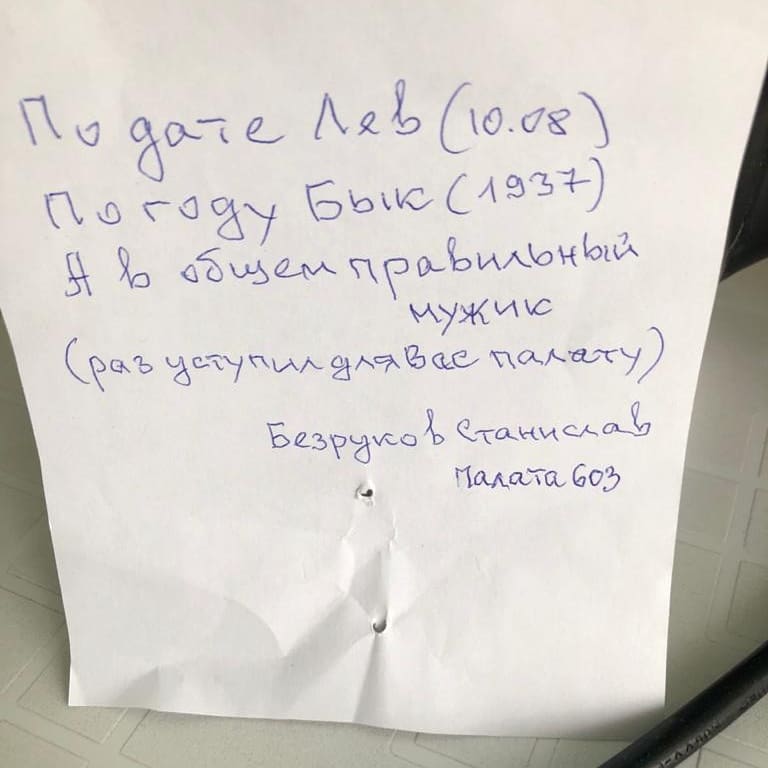 По дате Лев (10.08)
По году Бык (1937)
А в общем правильный
мужик
(раз уступил для Вас палату)
Безруков Станислав
Палата 603